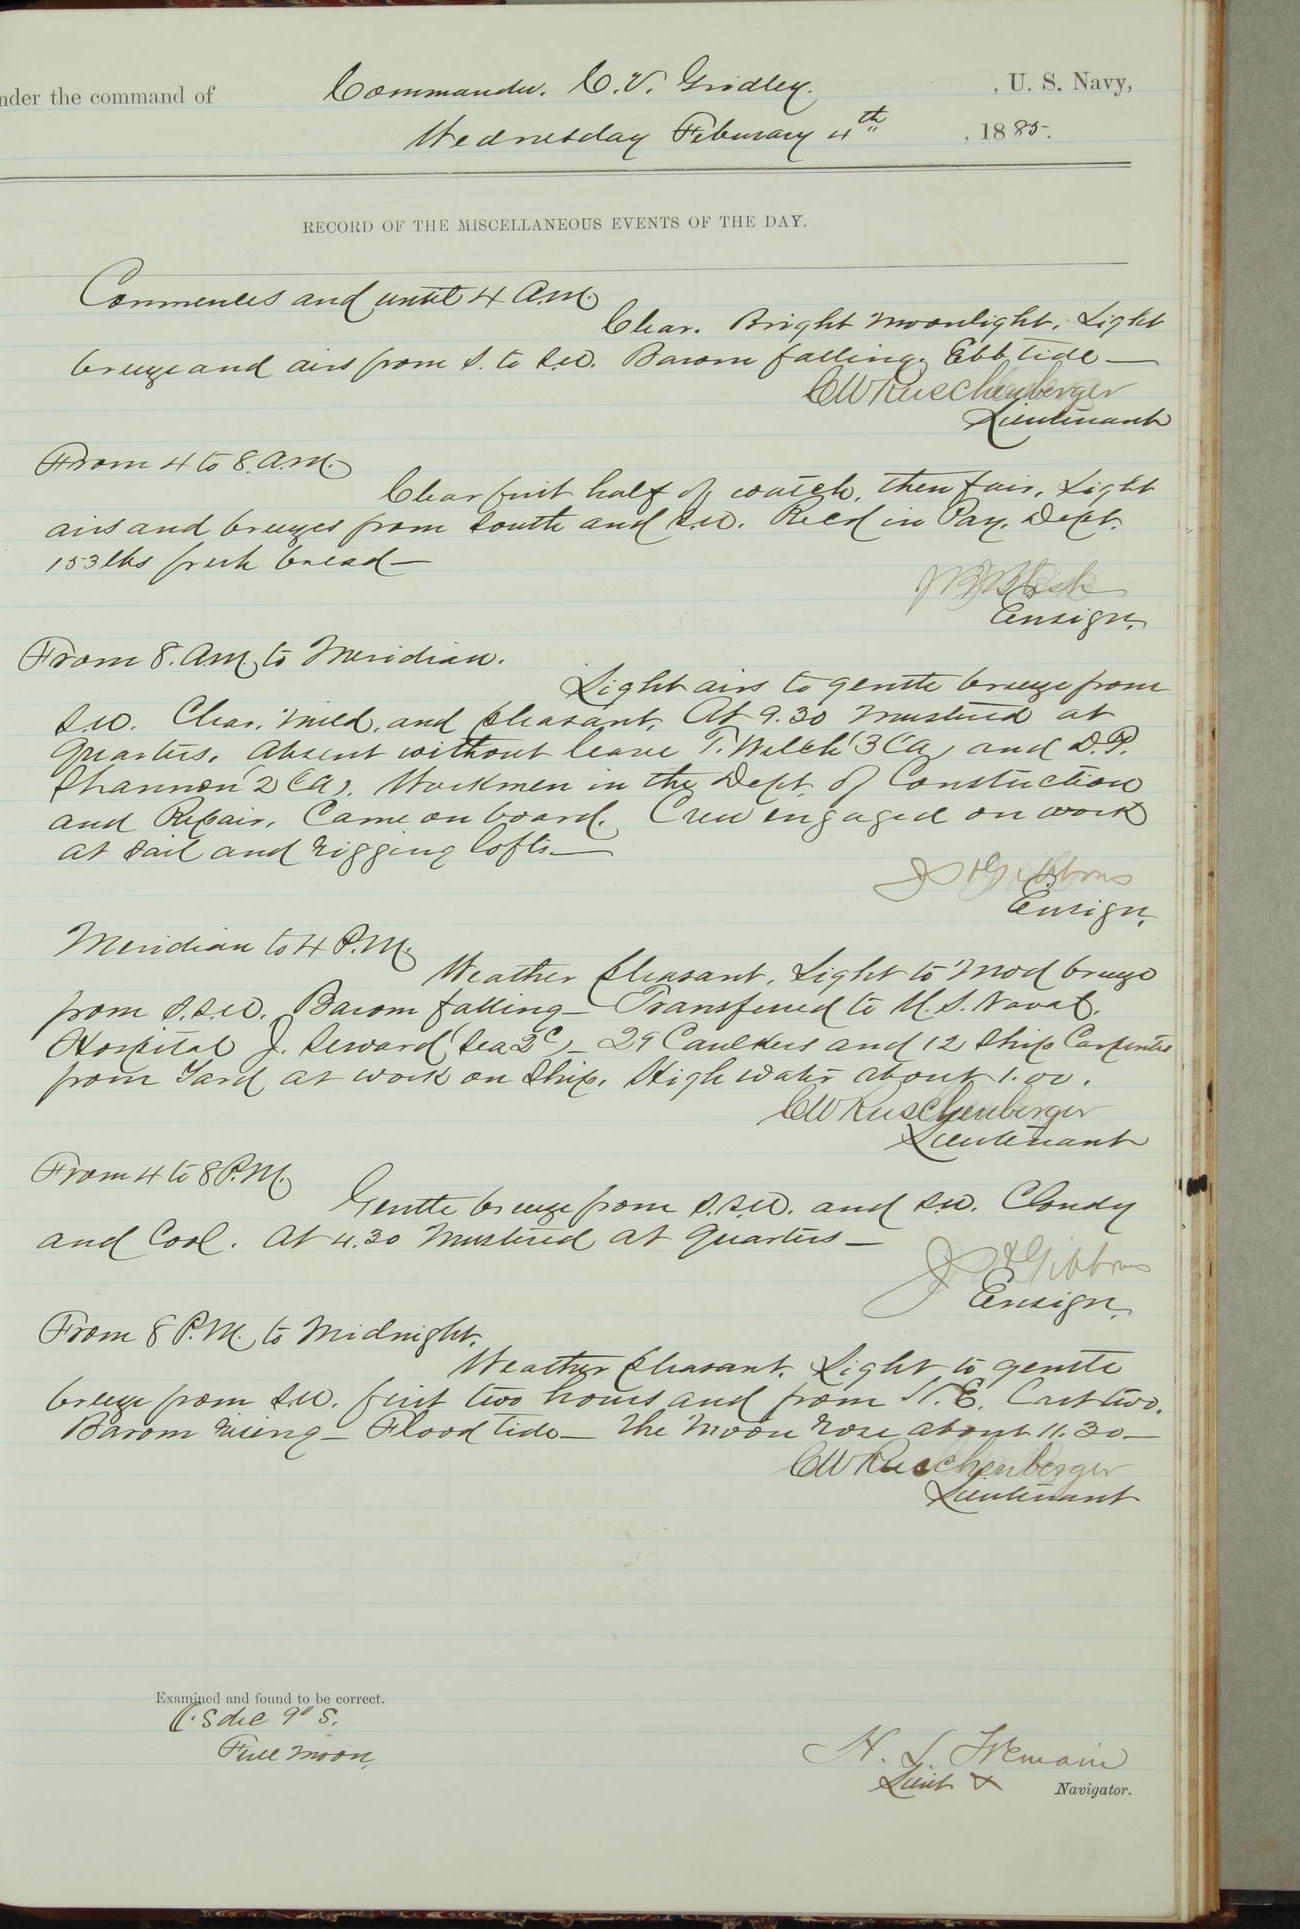 nder the command of Commander. C. V. Gridley. , U. S. Navy,
Wednesday February 4th , 1885.
RECORD OF THE MISCELLANEOUS EVENTS OF THE DAY.
Commences and until 4 A.M.
Clear. Bright moonlight. Light
breeze and airs from S. to S.W. Barom falling. Ebb tide —
C W Ruschenberger
Lieutenant
From 4 to 8. A.M.
Clear first half of watch, then fair. Light
airs and breezes from South and S.W. Recd in Pay. Dept.
153 lbs fresh bread —
Ensign.
From 8. A.M. to Meridian.
Light airs to gentle breeze from
S.W. Clear, mild, and pleasant. At 9.30 mustered at
quarters. Absent without leave T. Welch (3 Ca) and D. P.
Shannon (2 Ca). Workmen in the Dept. of Construction
and Repair, Came on board. Crew engaged on work
at sail and rigging lofts. —
J H Gibbons
Ensign.
Meridian to 4 P.M.
Weather pleasant. Light to Mod breeze
from S.S.W. Barom falling — Transferred to U. S. Naval.
Hospital J. Seward (Sea 2c) — 29 Caulkers and 12 Ship Carpenters
from Yard at work on Ship. High water about 1.00.
C W Ruschenberger
Lieutenant
From 4 to 8 P.M.
Gentle breeze from S.S.W. and S.W. Cloudy
and Cool. At 4.30 mustered at quarters —
J H Gibbons
Ensign.
From 8 P.M. to Midnight.
Weather pleasant. Light to gentle
breeze from S.W. first two hours and from N. E. last two.
Barom rising — Flood tide — The Moon rose about 11.30 —
C W Ruschenberger
Lieutenant
Examined and found to be correct.
☾'s dec 9° S.
Full Moon.
H. L.
Lieut & Navigator.